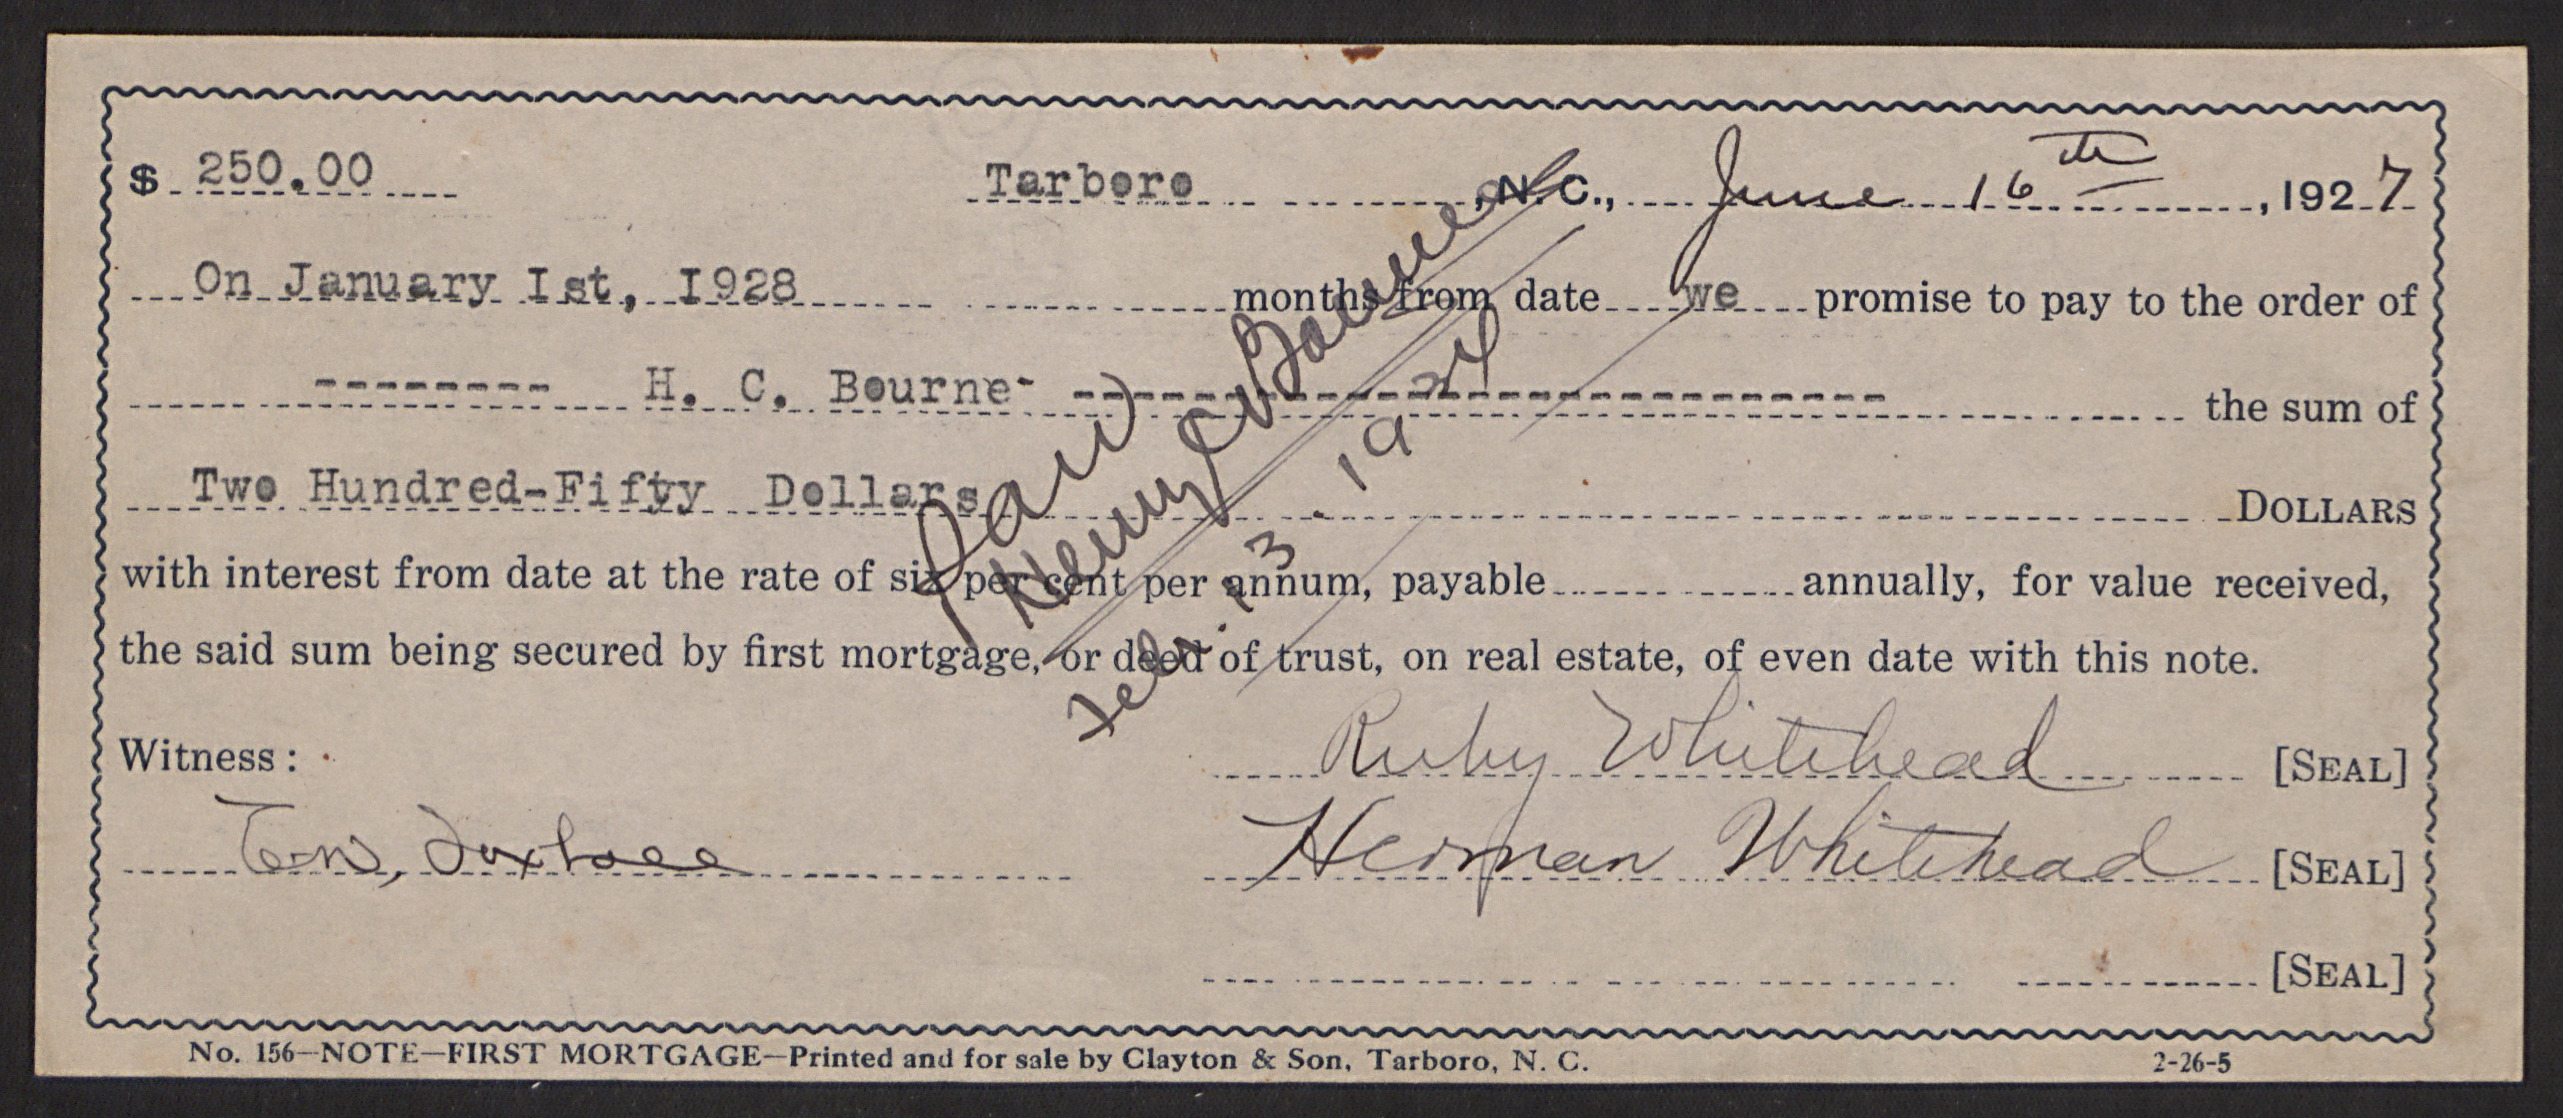 $ 250.00 Tarboro , N. C., June 16th, 1927
On January Ist, I928 months from date we promise to pay to the order of
-------- H. C. Bourne- --------------------------- the sum of
Two Hundred-Fifty Dollars DOLLARS
with interest from date at the rate of six per cent per annum, payable annually, for value received,
the said sum being secured by first mortgage, or deed of trust, on real estate, of even date with this note.
Paid
Henry C. Bourne
Feby. 13. 192
Witness: Ruby Whitehead [SEAL]
Herman Whitehead [SEAL]
[SEAL]
No. 156—NOTE—FIRST MORTGAGE—Printed and for sale by Clayton & Son, Tarboro, N. C. 2-26-5